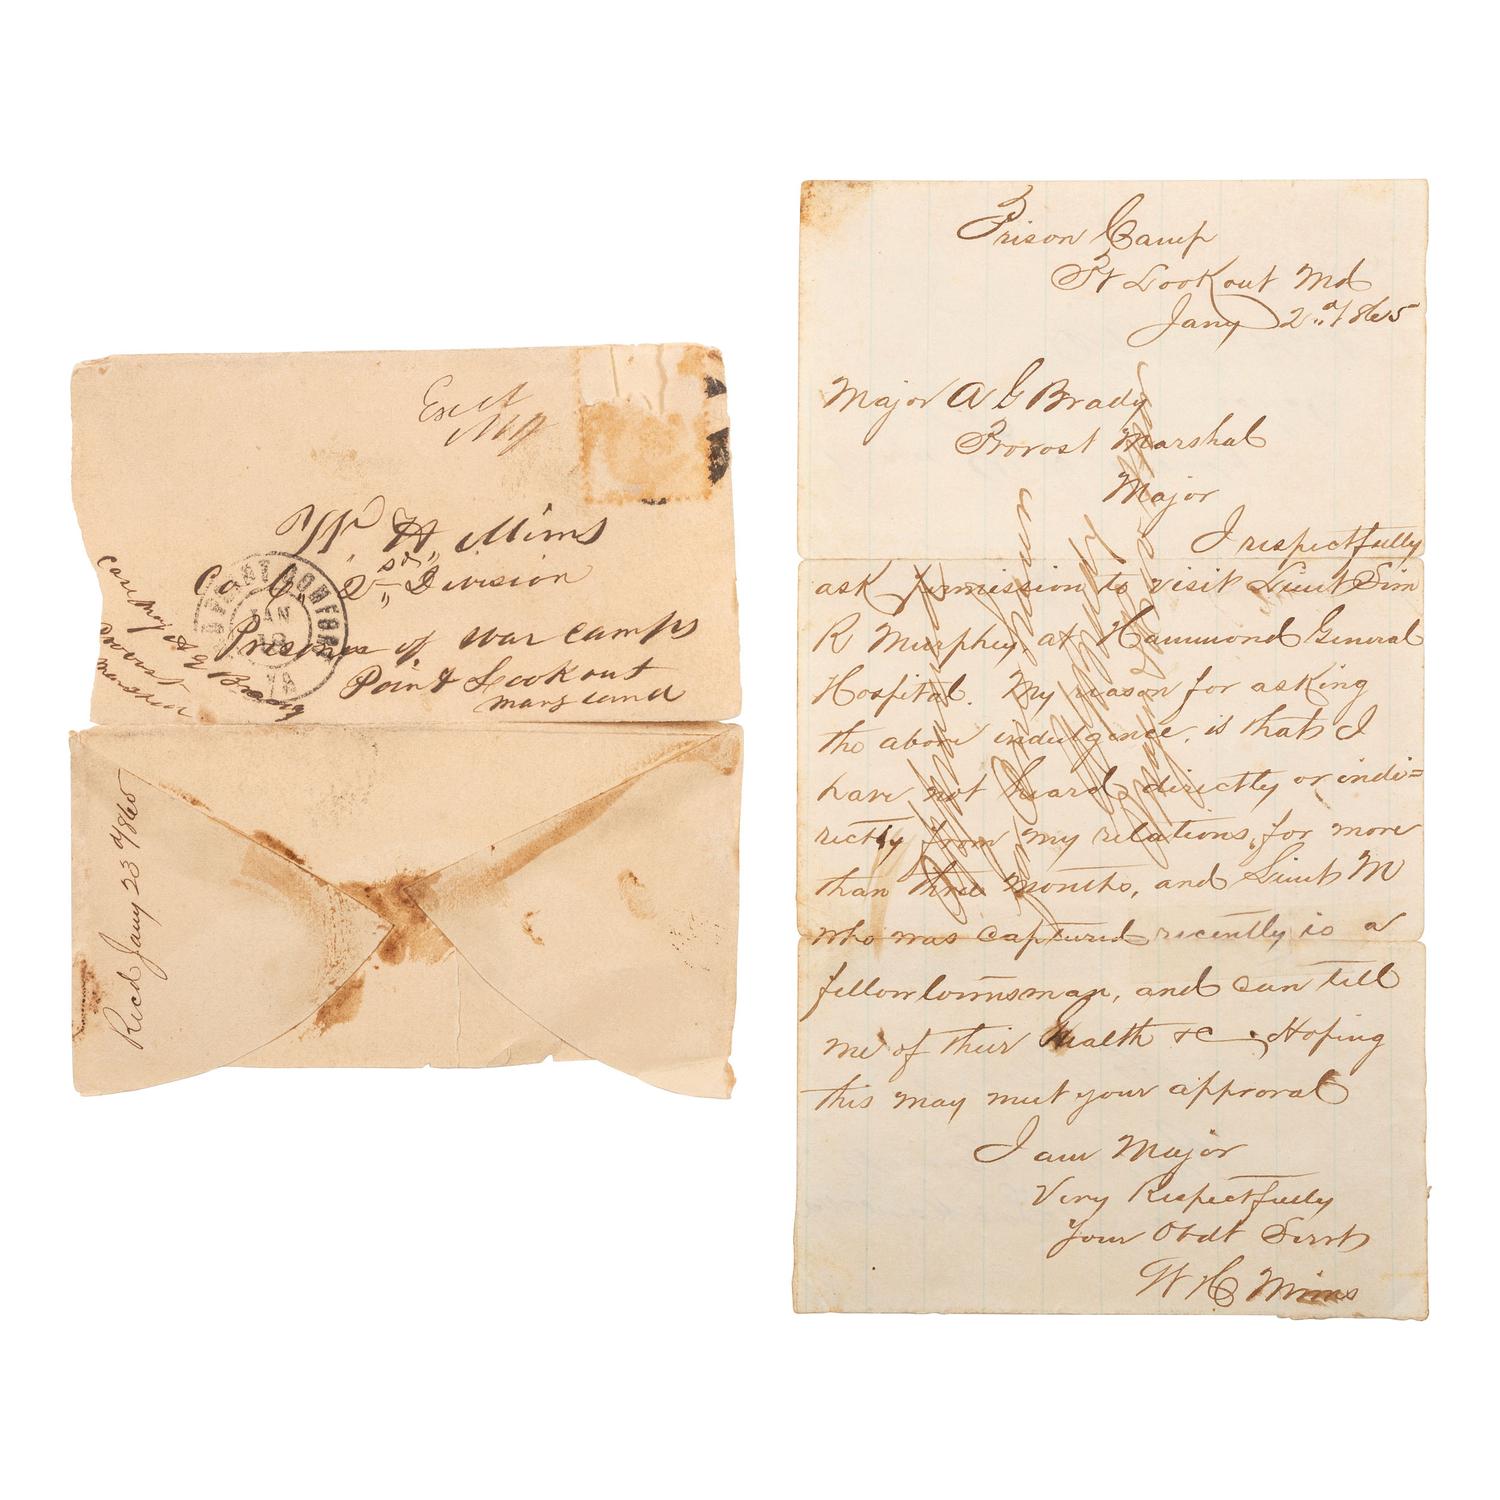 Exd
W H Mims
Co C, 2nd Division
Prisoner of war camps
Point Lookout
Maryland
Care Maj A G Brady
Provost
Marshal
POINT COMFORT
JAN
VA
Recd Jany 23d 1865
Prison Camp
Pt Lookout Md
Jany 2nd 1865
Major A G Brady
Provost Marshal
Major
I respectfully
ask permission to visit Lieut Sim
R Murphey, at Hammond General
Hospital. My reason for asking
the above indulgence, is that I
have not heard, directly or indi=
rectly from my relations, for more
than three months, and Lieut M
who was captured recently is a
fellow townsman, and can tell
me of their health &c. Hoping
this may meet your approval
I am Major
Very Respectfully
Your Obdt Servt
W H Mims